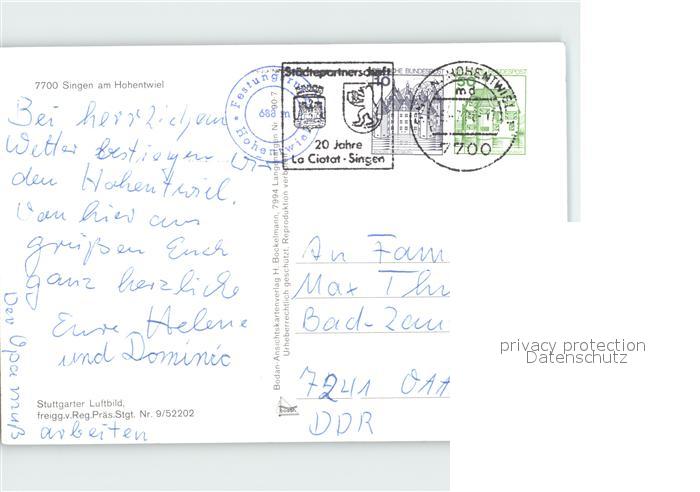 7700 Singen am Hohentwiel
Bei herrlichem
Wetter bestiegen wir
den Hohentwiel.
Von hier aus
grüßen Euch
ganz herzliche
Eure Helene
und Dominic
Der Opa muß
arbeiten
Stuttgarter Luftbild,
freigg.v.Reg.Präs.Stgt. Nr. 9/52202
Festungsruine
688 m
Hohentwiel
Städtepartnerschaft
20 Jahre
La Ciotat - Singen
DEUTSCHE BUNDESPOST
10
50
DEUTSCHE BUNDESPOST
SINGEN, HOHENTWIEL
md
7700
Bodan-Ansichtskartenverlag H. Bockelmann, 7994 Langenargen
Urheberrechtlich geschützt. Reproduktion verboten
An Fam
Max Thu
Bad-Zau
7241 OAA
DDR
privacy protection
Datenschutz